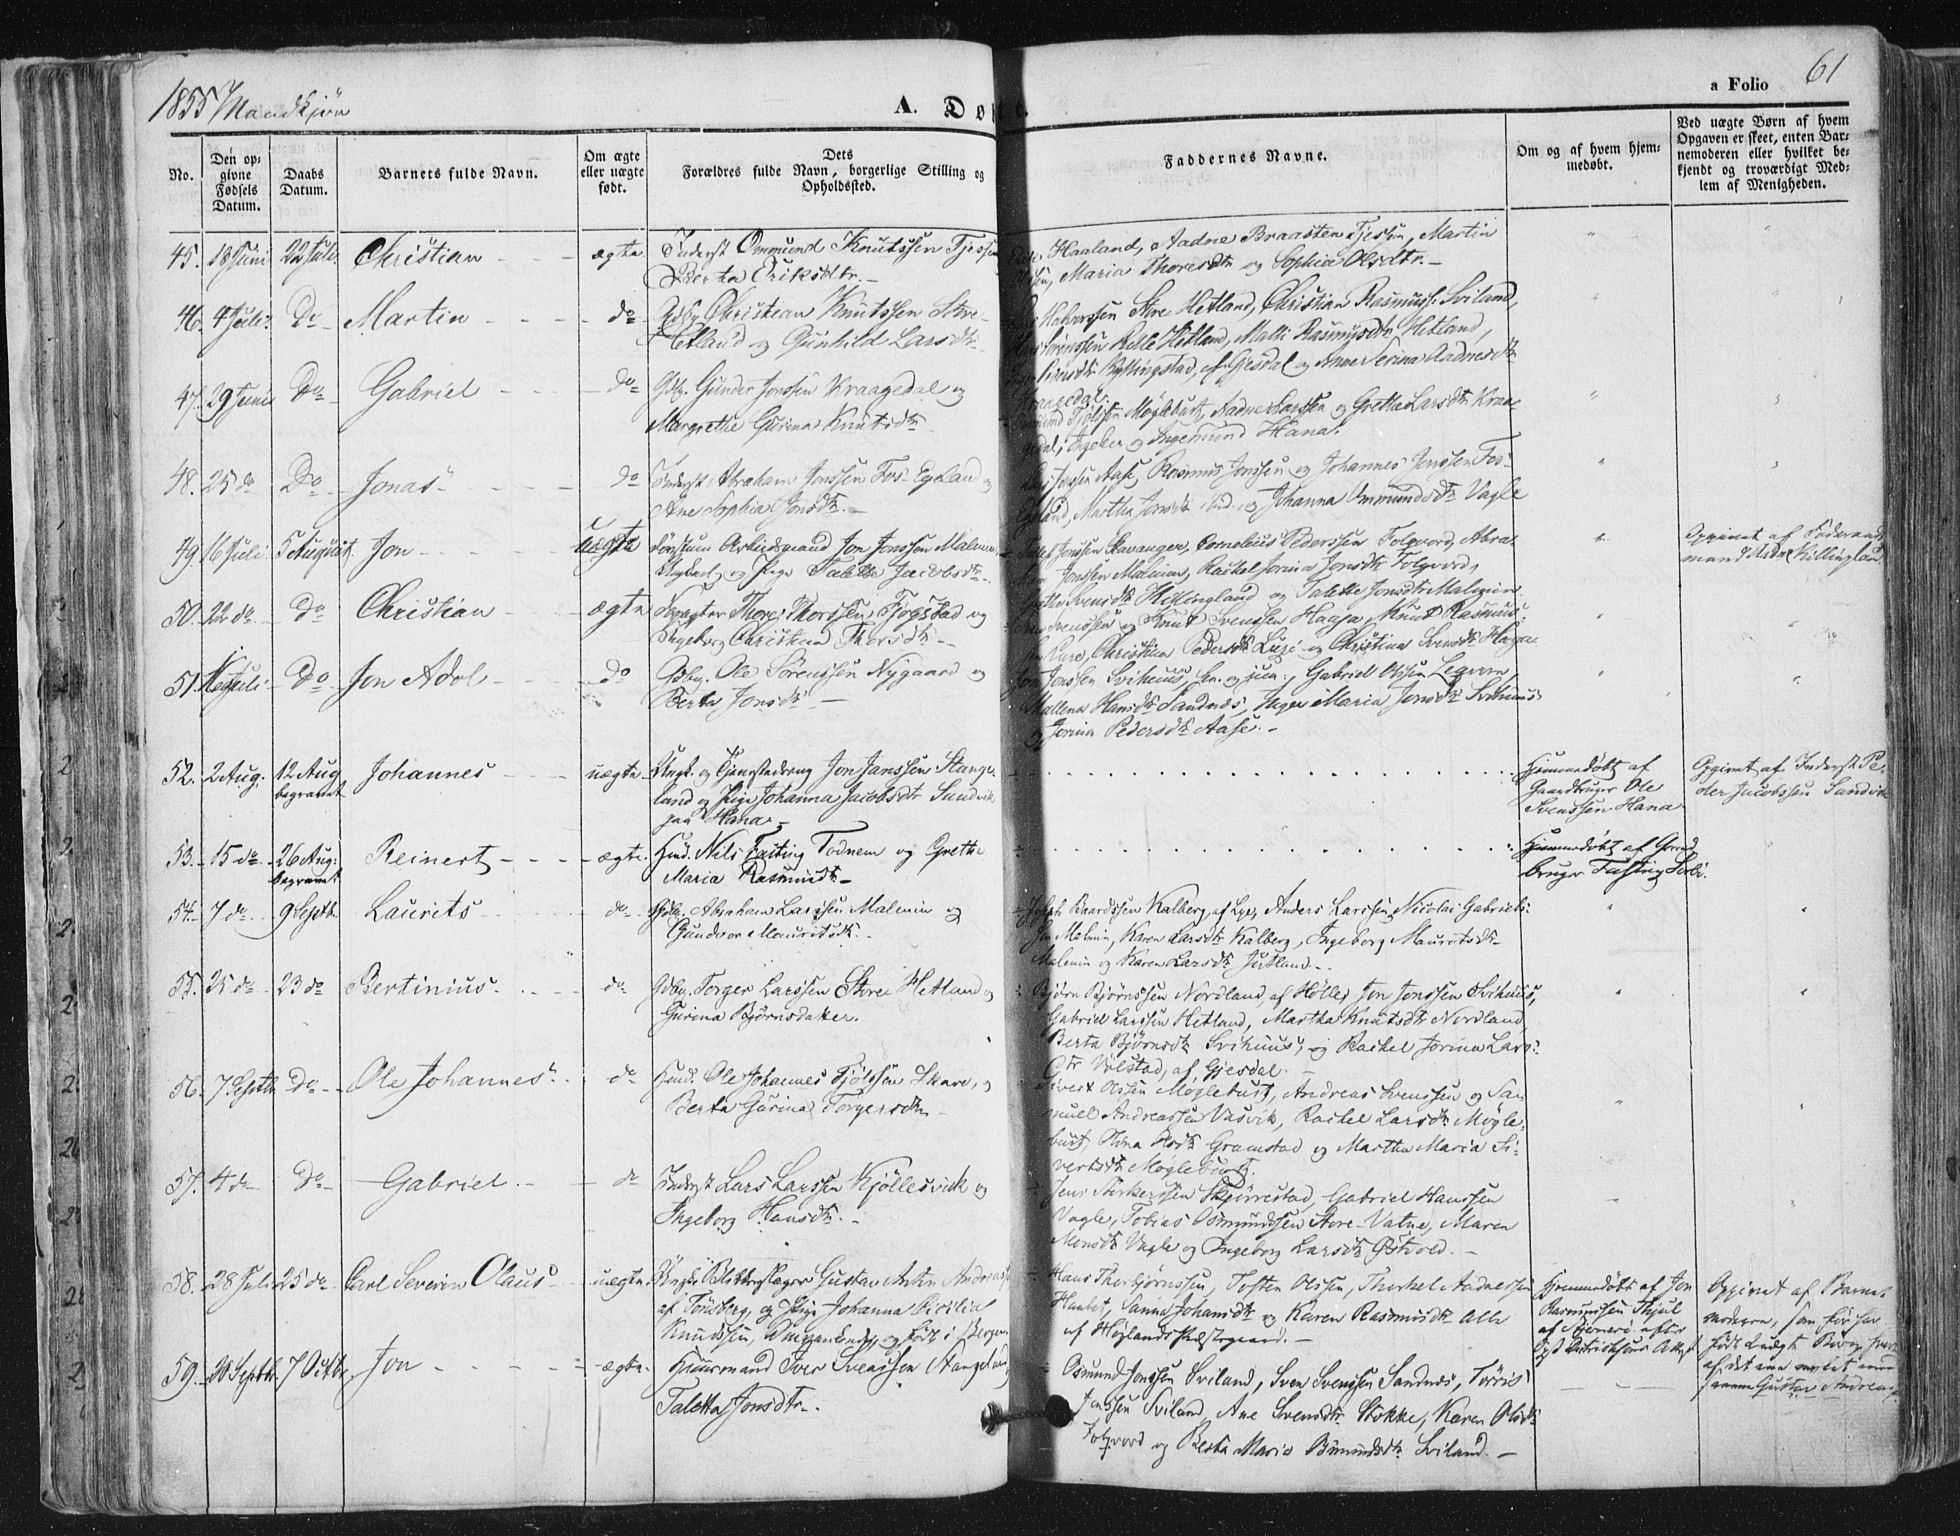 1855 Mandkjøn
A. Døbte.
a Folio 61
No.
Den opgivne Fødsels Datum.
Daabs Datum.
Barnets fulde Navn.
Om ægte eller uægte født.
Dets Forældres fulde Navn, borgerlige Stilling og Opholdsted.
Faddernes Navne.
Om og af hvem hjemmedøbt.
Ved uægte Børn af hvem Opgaven er skeet, enten Barnemoderen eller hvilket bekjendt og troværdigt Medlem af Menigheden.
45. 18 Juni 22 Juli Christian ægte Inderst Ommund Knutssen Tjessem
Berta Eriksdtr.
Haaland, Aadne Braasten Tjessem, Martin
Maria Thoresdtr og Sophia Olsdtr.
46. 4 Juli Do Martin do Gdbr. Christian Knutssen Store
Hetland og Gunhild Larsdtr
Halvorssen Store Hetland, Christian Rasmuss. Sviland,
Sørenssen Lille Hetland, Malli Rasmusdtr Hetland,
Byllingstad, af Gjesdal og Anne Serina Aadnesdtr
Kraagedal.
47. 29 Juni Do Gabriel do Gdbr. Gunder Jonssen Kraagedal og
Margrethe Gurina Knutsdtr
Møglebust, Aadne Larssen og Gretha Larsdtr Kraa-
gedal, Ingeb. og Ingemund Hana.
48. 25 do Do Jonas do Inderst Abraham Jonssen Fos-Egeland og
Ane Sophia Jonsdtr.
Aase, Rasmus Jonssen og Johannes Jonssen Fos-
Egeland, Martha Jonsdtr ibid. og Johanna Ommundsdtr Vagle
49. 16 Juli 5 August Jon uægte Arbeidsmand Jon Jonssen Malmin
Ungkarl og Pige Talette Jacobsdtr
Jonssen Stavanger, Cornelius Pederssen Folgvord, Abra-
ham Jonssen Malmin, Rachel Jorina Jonsdtr Folgvord,
Svensdtr Hillingland og Talette Jonsdtr Malmin
Opgivet af Føderaads-
mand
50. 22 do Do Christian ægte Forpagter Thore Thorssen Fjogstad og
Ingeborg Christina Thorsdtr
Svenssen og Knut Svenssen Haga, Knut Rasmus-
sen Lure, Christina Pedersdtr Luze og Christina Svensdtr Haga
51. Juli Do Jon Adol do Gdbr. Ole Sørenssen Nygaard og
Berta Jonsdtr
Jon Jonssen Svihuus, sen. og jun., Gabriel Olssen Legvern,
Mallena Hansdtr Sandnæs, Inger Maria Jonsdtr Svihuus
og Jorina Pedersdtr Aase.
52. 2 Aug. 12 Aug. begravet Johannes uægte Ungk. og Tjenestedreng Jon Janssen Stange-
land og Pige Johanna Jacobsdtr Sandvik
paa Hana
Hjemmedøbt af
Gaardbruger Ole
Svenssen Hana
Opgivet af Inderst Pe-
der Jacobssen Sandvik
53. 15 do 26 Aug. begravet Reinert ægte. Huusm. Nils Fasting Todnem og Grethe
Maria Rasmusdtr
Hjemmedøbt af Gaard-
bruger Fasting
54. 7 do 9 Septb. Laurits do Gdbr. Abraham Larssen Malmin og
Gundvor Mauritsdtr.
Joseph Baardssen Kalberg, af Lye, Anders Larssen, Nicolai Gabriels-
sen Malmin, Karen Larsdtr Kalberg, Ingeborg Mauritsdtr
Malmin og Karen Larsdtr Jutland.
55. 25 do 23 do Bertinius do Gdbr. Torger Larssen Store Hetland og
Gurina Bjørnsdatter.
Bjørn Bjørnssen Nordland, af Hølle, Jon Jonssen Svihuus,
Gabriel Larssen Hetland, Martha Knutsdtr Nordland
Berta Bjørnsdtr Svihuus, og Rachel Jorina Lars-
dtr Ulvestad, af Gjesdal.
56. 7 Septb. Do Ole Johannes do Huusm. Ole Johannes Fjølssen Skare, og
Berta Gurina Torgersdtr
Sivert Olssen Møglebust, Andreas Svenssen og Sa-
muel Andreassen Vasvik, Rachel Larsdtr Møgle-
bust, Stina Olsdtr Gramstad og Martha Maria Si-
vertsdtr Møglebust.
57. 4 do Do Gabriel do Inderst Lars Larssen Kjøllesvick og
Ingeborg Hansdtr.
Jens Størkerssen Skjørrestad, Gabriel Hanssen
Vagle, Tobias Osmundssen Aore-Vatne, Maren
Monsdtr Vagle og Ingeborg Larsdtr Østvold.
58. 28 Juli 25 do Carl Severin Olaus uægte Ungk. Blikkenslager Gustav Anton Andreass.
af Tønsberg, og Pige Johanna Cicilia
Knudssen, født i Bergen
Hans Thorbjørnssen, Tosten Olssen, Thorkel Aadnessen
Haabet, Sanna Johansdtr og Karen Rasmusdtr Alle
af Høylands Præstegaard.
Hjemmedøbt af Jon
Rasmussen
af efter
Districtsjord. Attest
Opgivet af Barne-
moderen, som før har
født uægte Børn, hvor-
af det ene med
samme Gustav Andreas
59. 20 Septb. 7 Octbr. Jon ægte. Huusmand Iver Svenssen Stangeland og
Taletta Jonsdtr.
Osmund Jonssen Sviland, Sven Svenssen Sandnæs, Tørris
Jonssen Sviland, Ane Svensdtr Stokke, Karen Olsdtr
Folgvord og Berta Maria Omundsdtr Sviland.